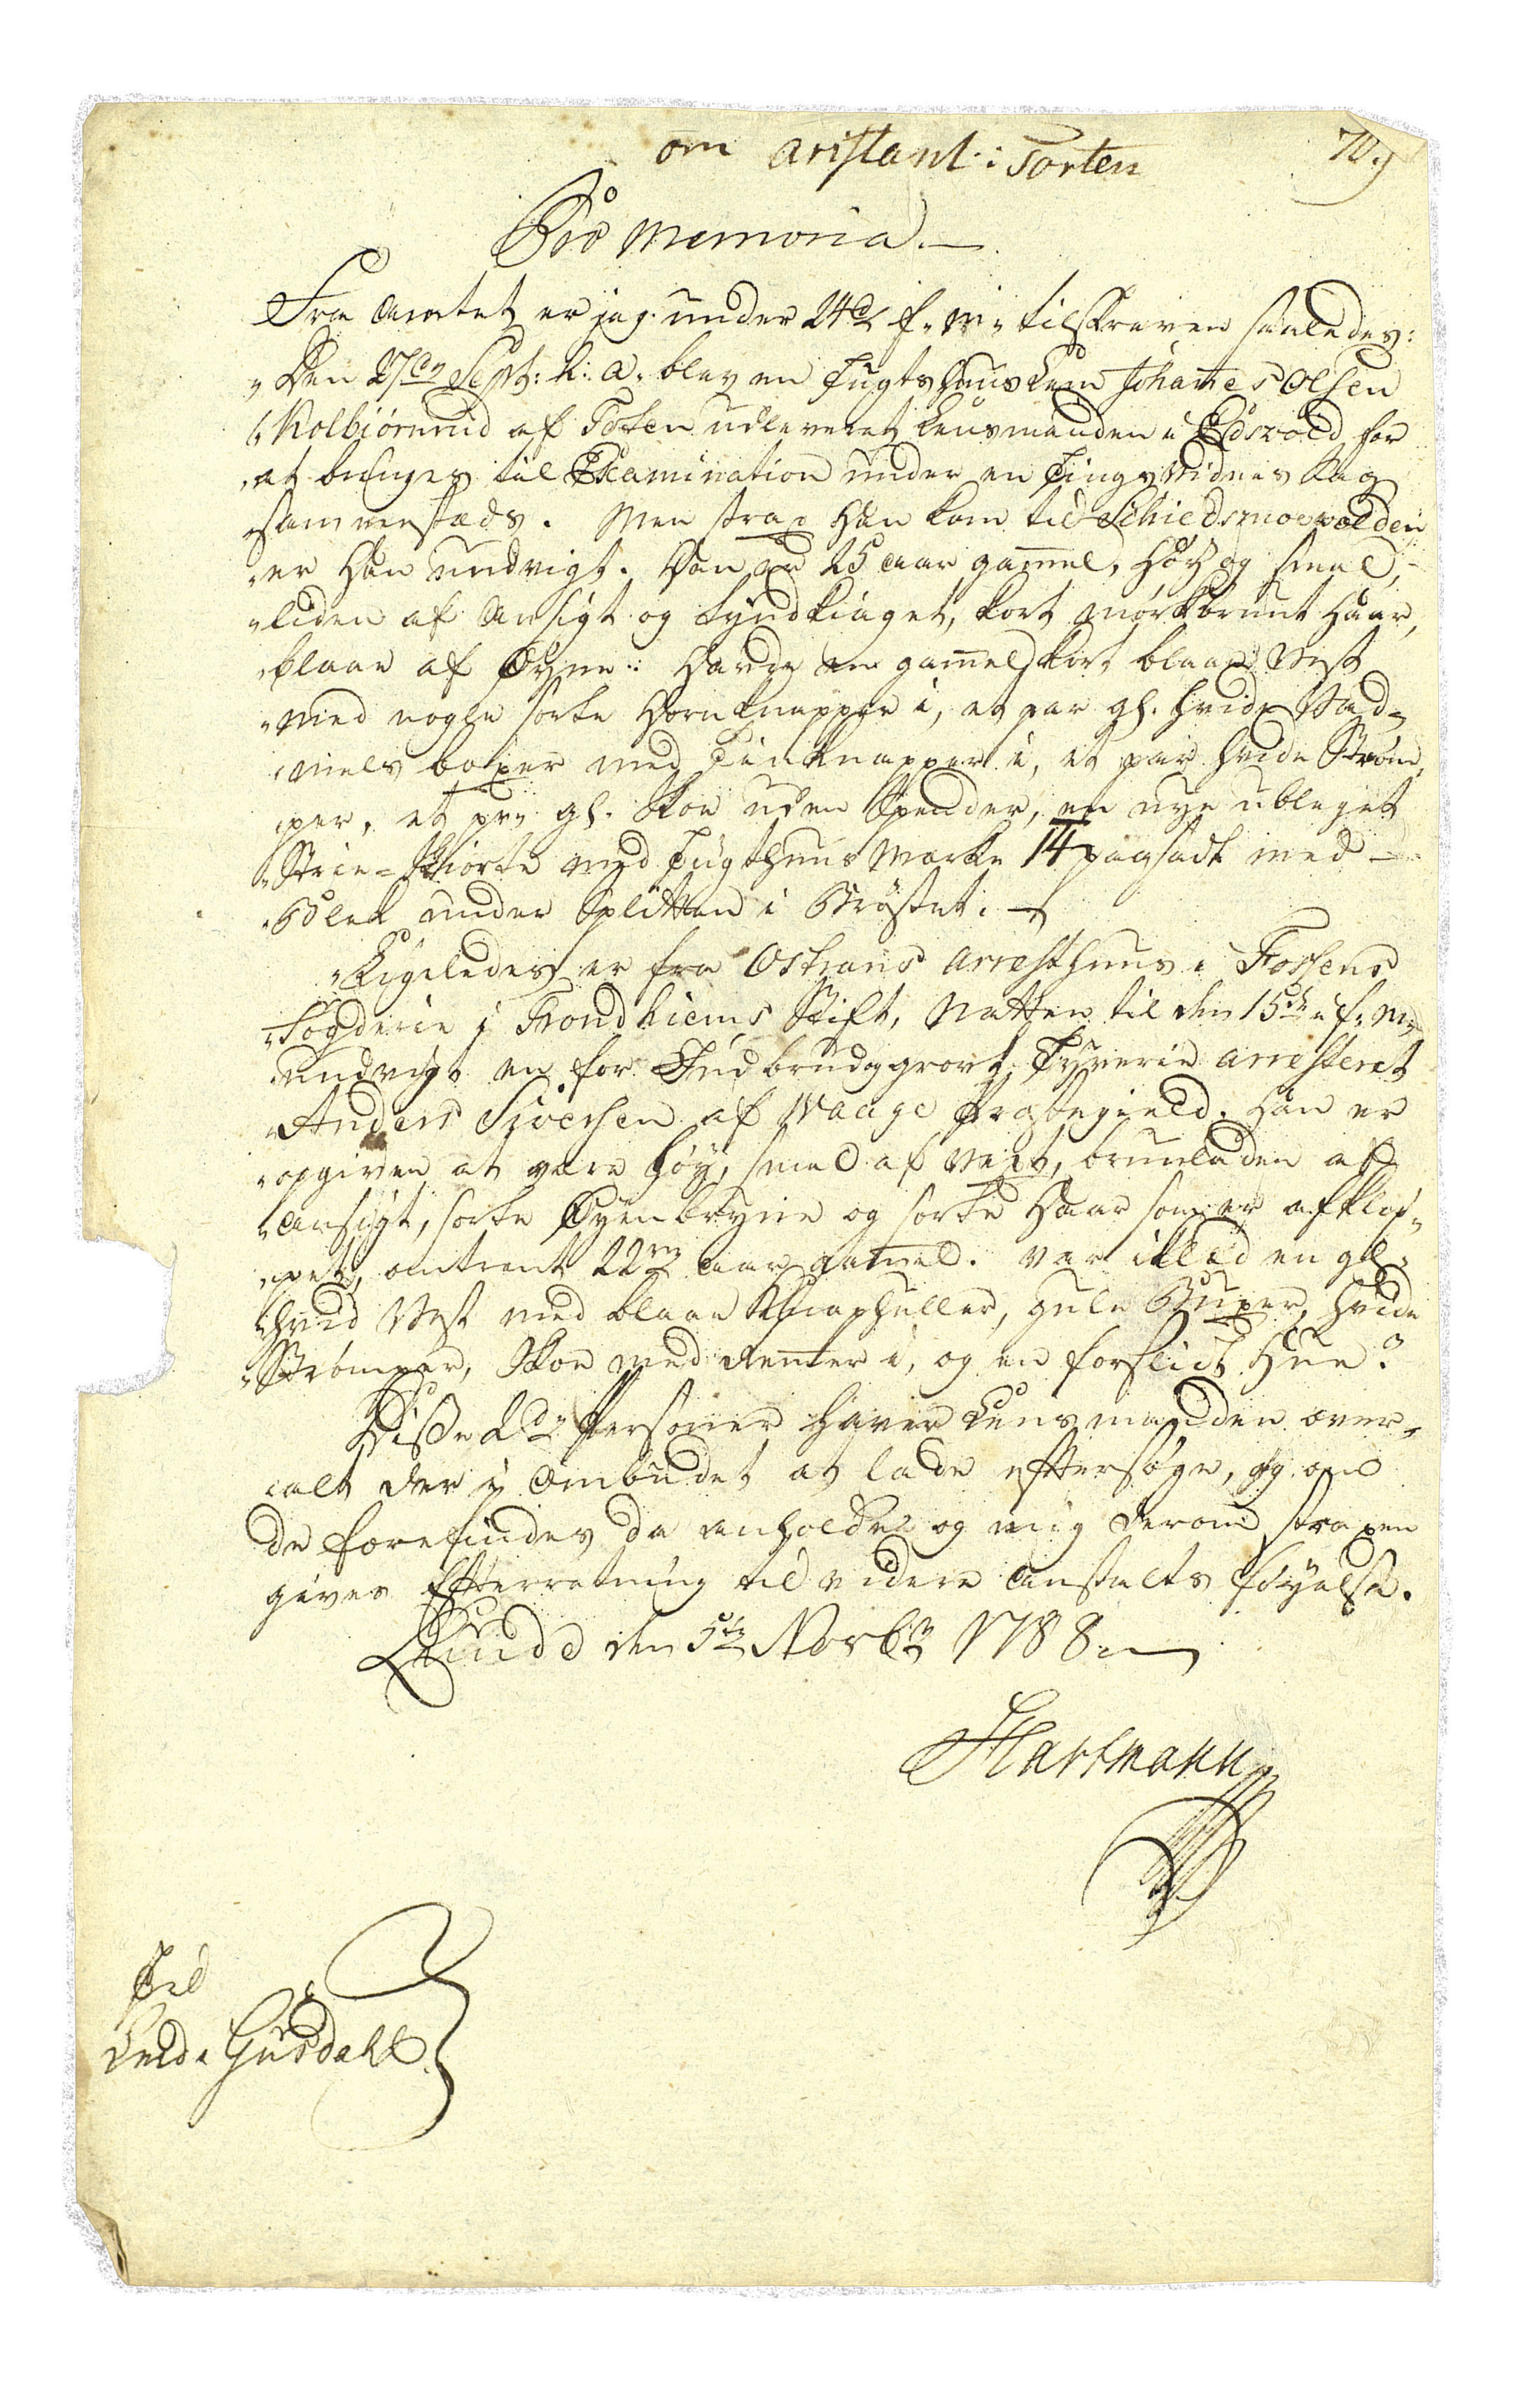 om aristant i Torten
70.
Pro Memoria.
Fra Amtet er jeg under 24de f. M. tilskreven saaledes:
"Den 27de Sept: h: a: blev en Tugthuus Lem Johannes Olsen
"Kolbiörnrud af Toten udleveret Lensmanden i Eidsvold for
"at bringes til Examination under en Tings Vidnes Sag
"sammesteds. Men strax Han kom til Schiedsmovolden
"er Han undvigt. Han er 25 aar gammel, Höy og smal,
"liden af Ansigt og tyndkiaget, kort mörkbrunt Haar,
"blaae af Øyne: Havde en gammel kort blaae Vest
"med nogle sorte Hornknapper i, et par gl. hvide Vad=
"mels boxer med Tinknapper i, et par hvide Ström,
"per, et par gl. Skoe uden Spender, en nye ubleget
"Strie=Skiorte med Tugthuus Mærke 14 paasadt med
"under Splitten i Bröstet.
"Ligeledes er fra Ostrans Arresthuus i Fossens
"Fogderie i Trondhiems Stift, Natten til den 15de f. M.
"undvigt en for Indbrud og grovt Tyverie arresteret
"Anders Siversen af Waage Præstegield. Han er
"opgiven at være höy, smal af Vext, bruunladen af
"Ansigt, sorte Øyenbryne og sorte Haar som er afklip,
"pet, omtrent 22 aar gammel. var iklæd en gl.
"hvid Vest med blaae Knaphuller, gule Buxer, hvide
"Strömper, Skoe med Remer i, og en forslidt Hue.
Disse 2de Personer haver Lensmanden over=
alt der i Ombudet at lade eftersöge, og om
de forefindes da anholde og mig derom straxen
gives Efterretning til videre Anstalts föyelse.
Lunde den 5te Novbr 1788
Hartmann
Til
Lensmd. Gusdahl